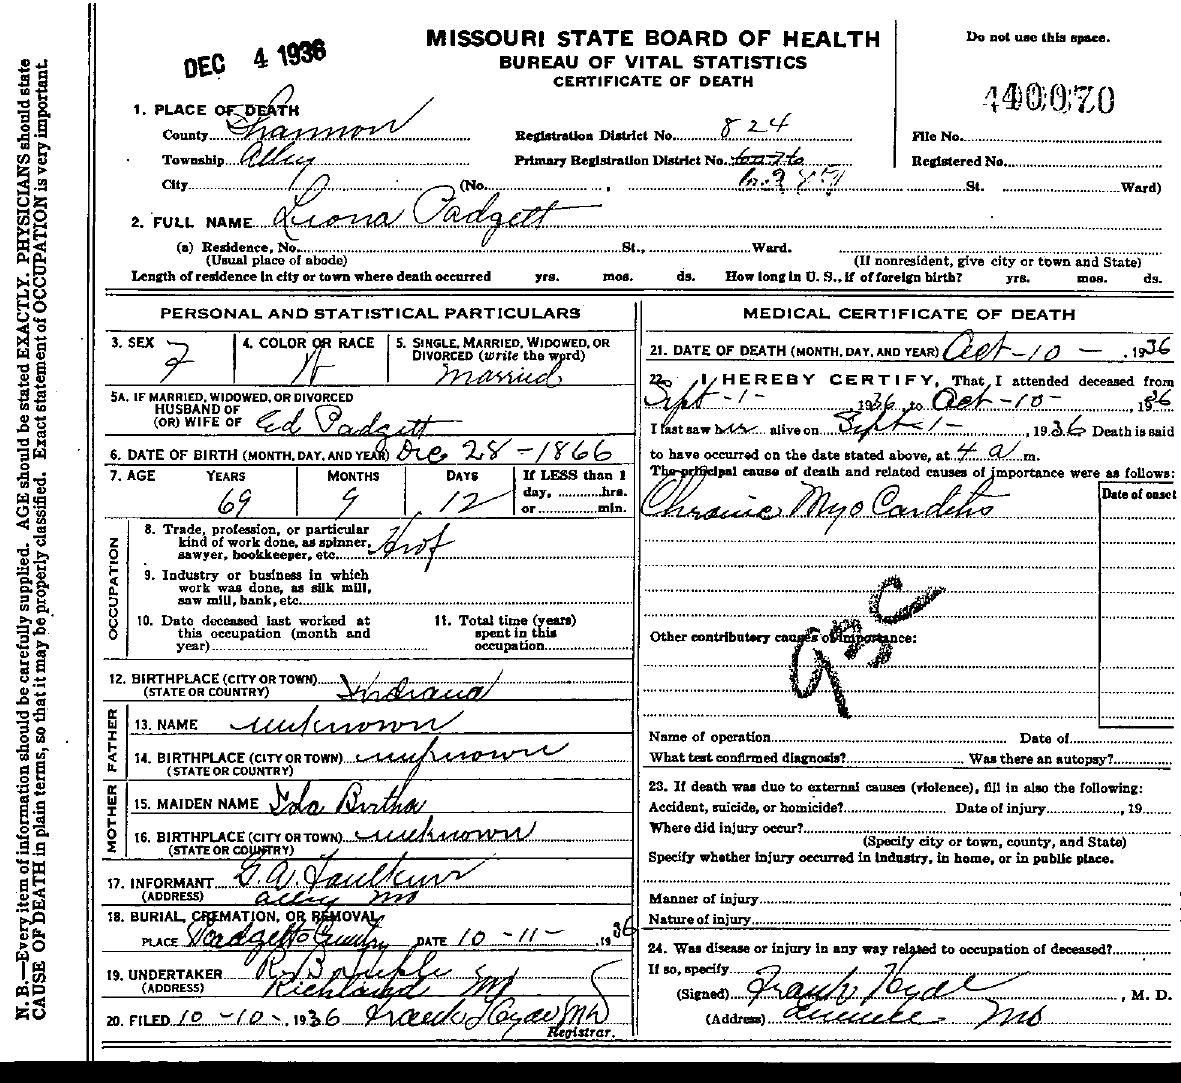 N. B.—Every item of information should be carefully supplied. AGE should be stated EXACTLY. PHYSICIANS should state
CAUSE OF DEATH in plain terms, so that it may be properly classified. Exact statement of OCCUPATION is very important.
DEC 4 1936
MISSOURI STATE BOARD OF HEALTH
BUREAU OF VITAL STATISTICS
CERTIFICATE OF DEATH
Do not use this space.
1. PLACE OF DEATH
County Shannon
Township Alley
City
(No. , St. Ward)
Registration District No. 824
Primary Registration District No.
File No.
Registered No.
2. FULL NAME Liona Padgett
(a) Residence, No. St., Ward.
(Usual place of abode)
(If nonresident, give city or town and State)
Length of residence in city or town where death occurred yrs. mos. ds. How long in U. S., if of foreign birth? yrs. mos. ds.
PERSONAL AND STATISTICAL PARTICULARS
3. SEX F
4. COLOR OR RACE W
5. SINGLE, MARRIED, WIDOWED, OR
DIVORCED (write the word)
Married
5A. IF MARRIED, WIDOWED, OR DIVORCED
HUSBAND OF
(OR) WIFE OF Ed Padgett
6. DATE OF BIRTH (MONTH, DAY, AND YEAR) Dec 28 - 1866
7. AGE YEARS MONTHS DAYS If LESS than 1
day, hrs.
or min.
69 9 12
OCCUPATION
8. Trade, profession, or particular
kind of work done, as spinner,
sawyer, bookkeeper, etc.
9. Industry or business in which
work was done, as silk mill,
saw mill, bank, etc.
10. Date deceased last worked at
this occupation (month and
year)
11. Total time (years)
spent in this
occupation
12. BIRTHPLACE (CITY OR TOWN) Indiana
(STATE OR COUNTRY)
FATHER
13. NAME unknown
14. BIRTHPLACE (CITY OR TOWN) unknown
(STATE OR COUNTRY)
MOTHER
15. MAIDEN NAME Ida Birtha
16. BIRTHPLACE (CITY OR TOWN) unknown
(STATE OR COUNTRY)
17. INFORMANT G. A. Faulkner
(ADDRESS) Alley Mo
18. BURIAL, CREMATION, OR REMOVAL
PLACE Padgett DATE 10-11- , 1936
19. UNDERTAKER
(ADDRESS) Richland Mo
20. FILED 10-10-, 1936 Frank Hyde MD
Registrar.
MEDICAL CERTIFICATE OF DEATH
21. DATE OF DEATH (MONTH, DAY, AND YEAR) Oct-10- , 1936
22. I HEREBY CERTIFY, That I attended deceased from
Sept-1- 1936 to Oct-10- , 1936
I last saw her alive on Sept-1- , 1936 Death is said
to have occurred on the date stated above, at 4 a m.
The principal cause of death and related causes of importance were as follows:
Date of onset
Chronic Myo Carditis
93C
Other contributory causes of importance:
Name of operation Date of
What test confirmed diagnosis? Was there an autopsy?
23. If death was due to external causes (violence), fill in also the following:
Accident, suicide, or homicide? Date of injury , 19
Where did injury occur?
(Specify city or town, county, and State)
Specify whether injury occurred in industry, in home, or in public place.
Manner of injury
Nature of injury
24. Was disease or injury in any way related to occupation of deceased?
If so, specify
(Signed) Frank Hyde , M. D.
(Address) Eminence Mo